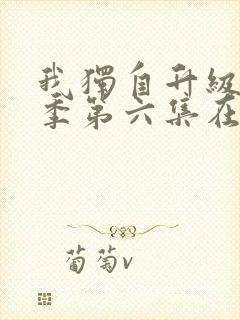 我獨自升級
季第六集在
葡萄v